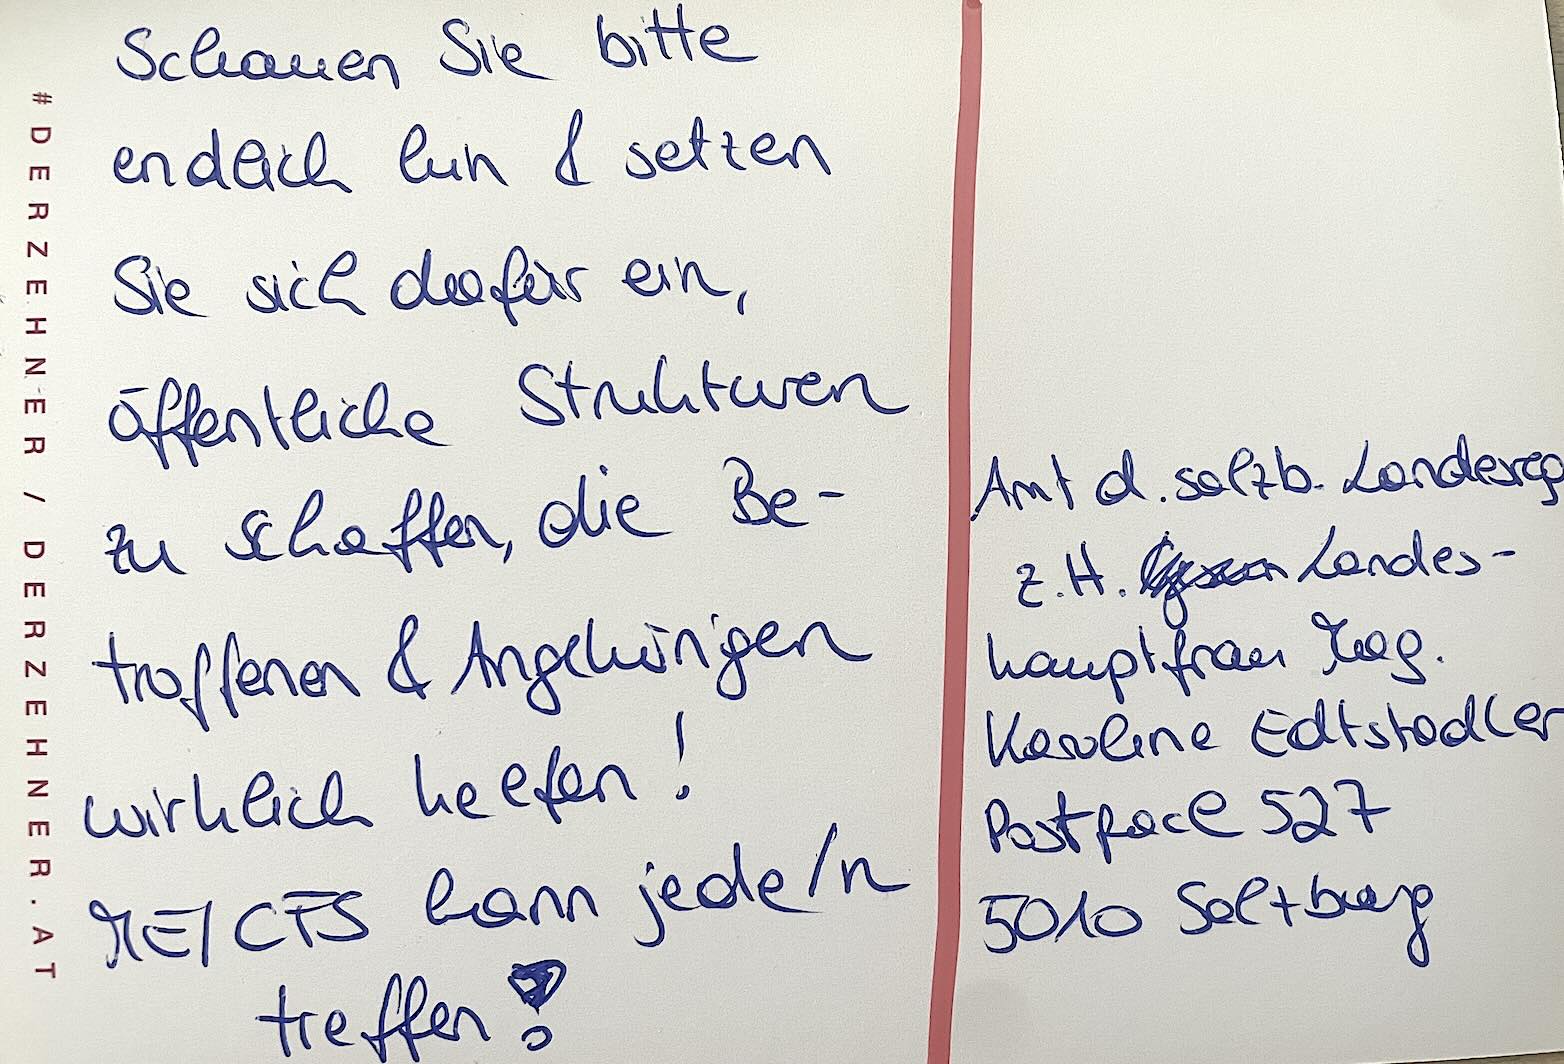 #DERZEHNER / DERZEHNER.AT
Schauen Sie bitte
endlich hin & setzen
Sie sich dafür ein,
öffentliche Strukturen
zu schaffen, die Be-
troffenen & Angehörigen
wirklich helfen!
ME/CFS kann jede/n
treffen!
Amt d. salzb. Landesreg
z.H. Landes-
hauptfrau Mag.
Karoline Edtstadler
Postfach 527
5010 Salzburg